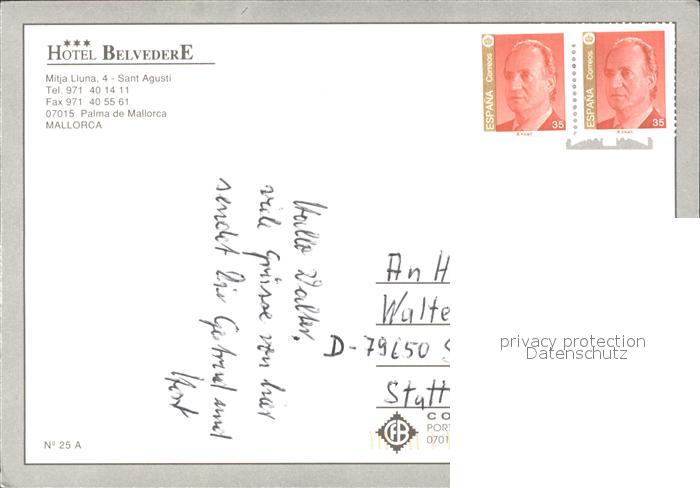 ★★★
HOTEL BELVEDERE
Mitja Lluna, 4 - Sant Agusti
Tel. 971 40 14 11
Fax 971 40 55 61
07015 Palma de Mallorca
MALLORCA
ESPAÑA Correos
35
ESPAÑA Correos
35
Hallo Walter,
viele Grüsse von hier
sendet Dir Gertrud und
Horst
An H
Walte
D-79650 S
Statt
CO
PORT
0701
privacy protection
Datenschutz
Nº 25 A